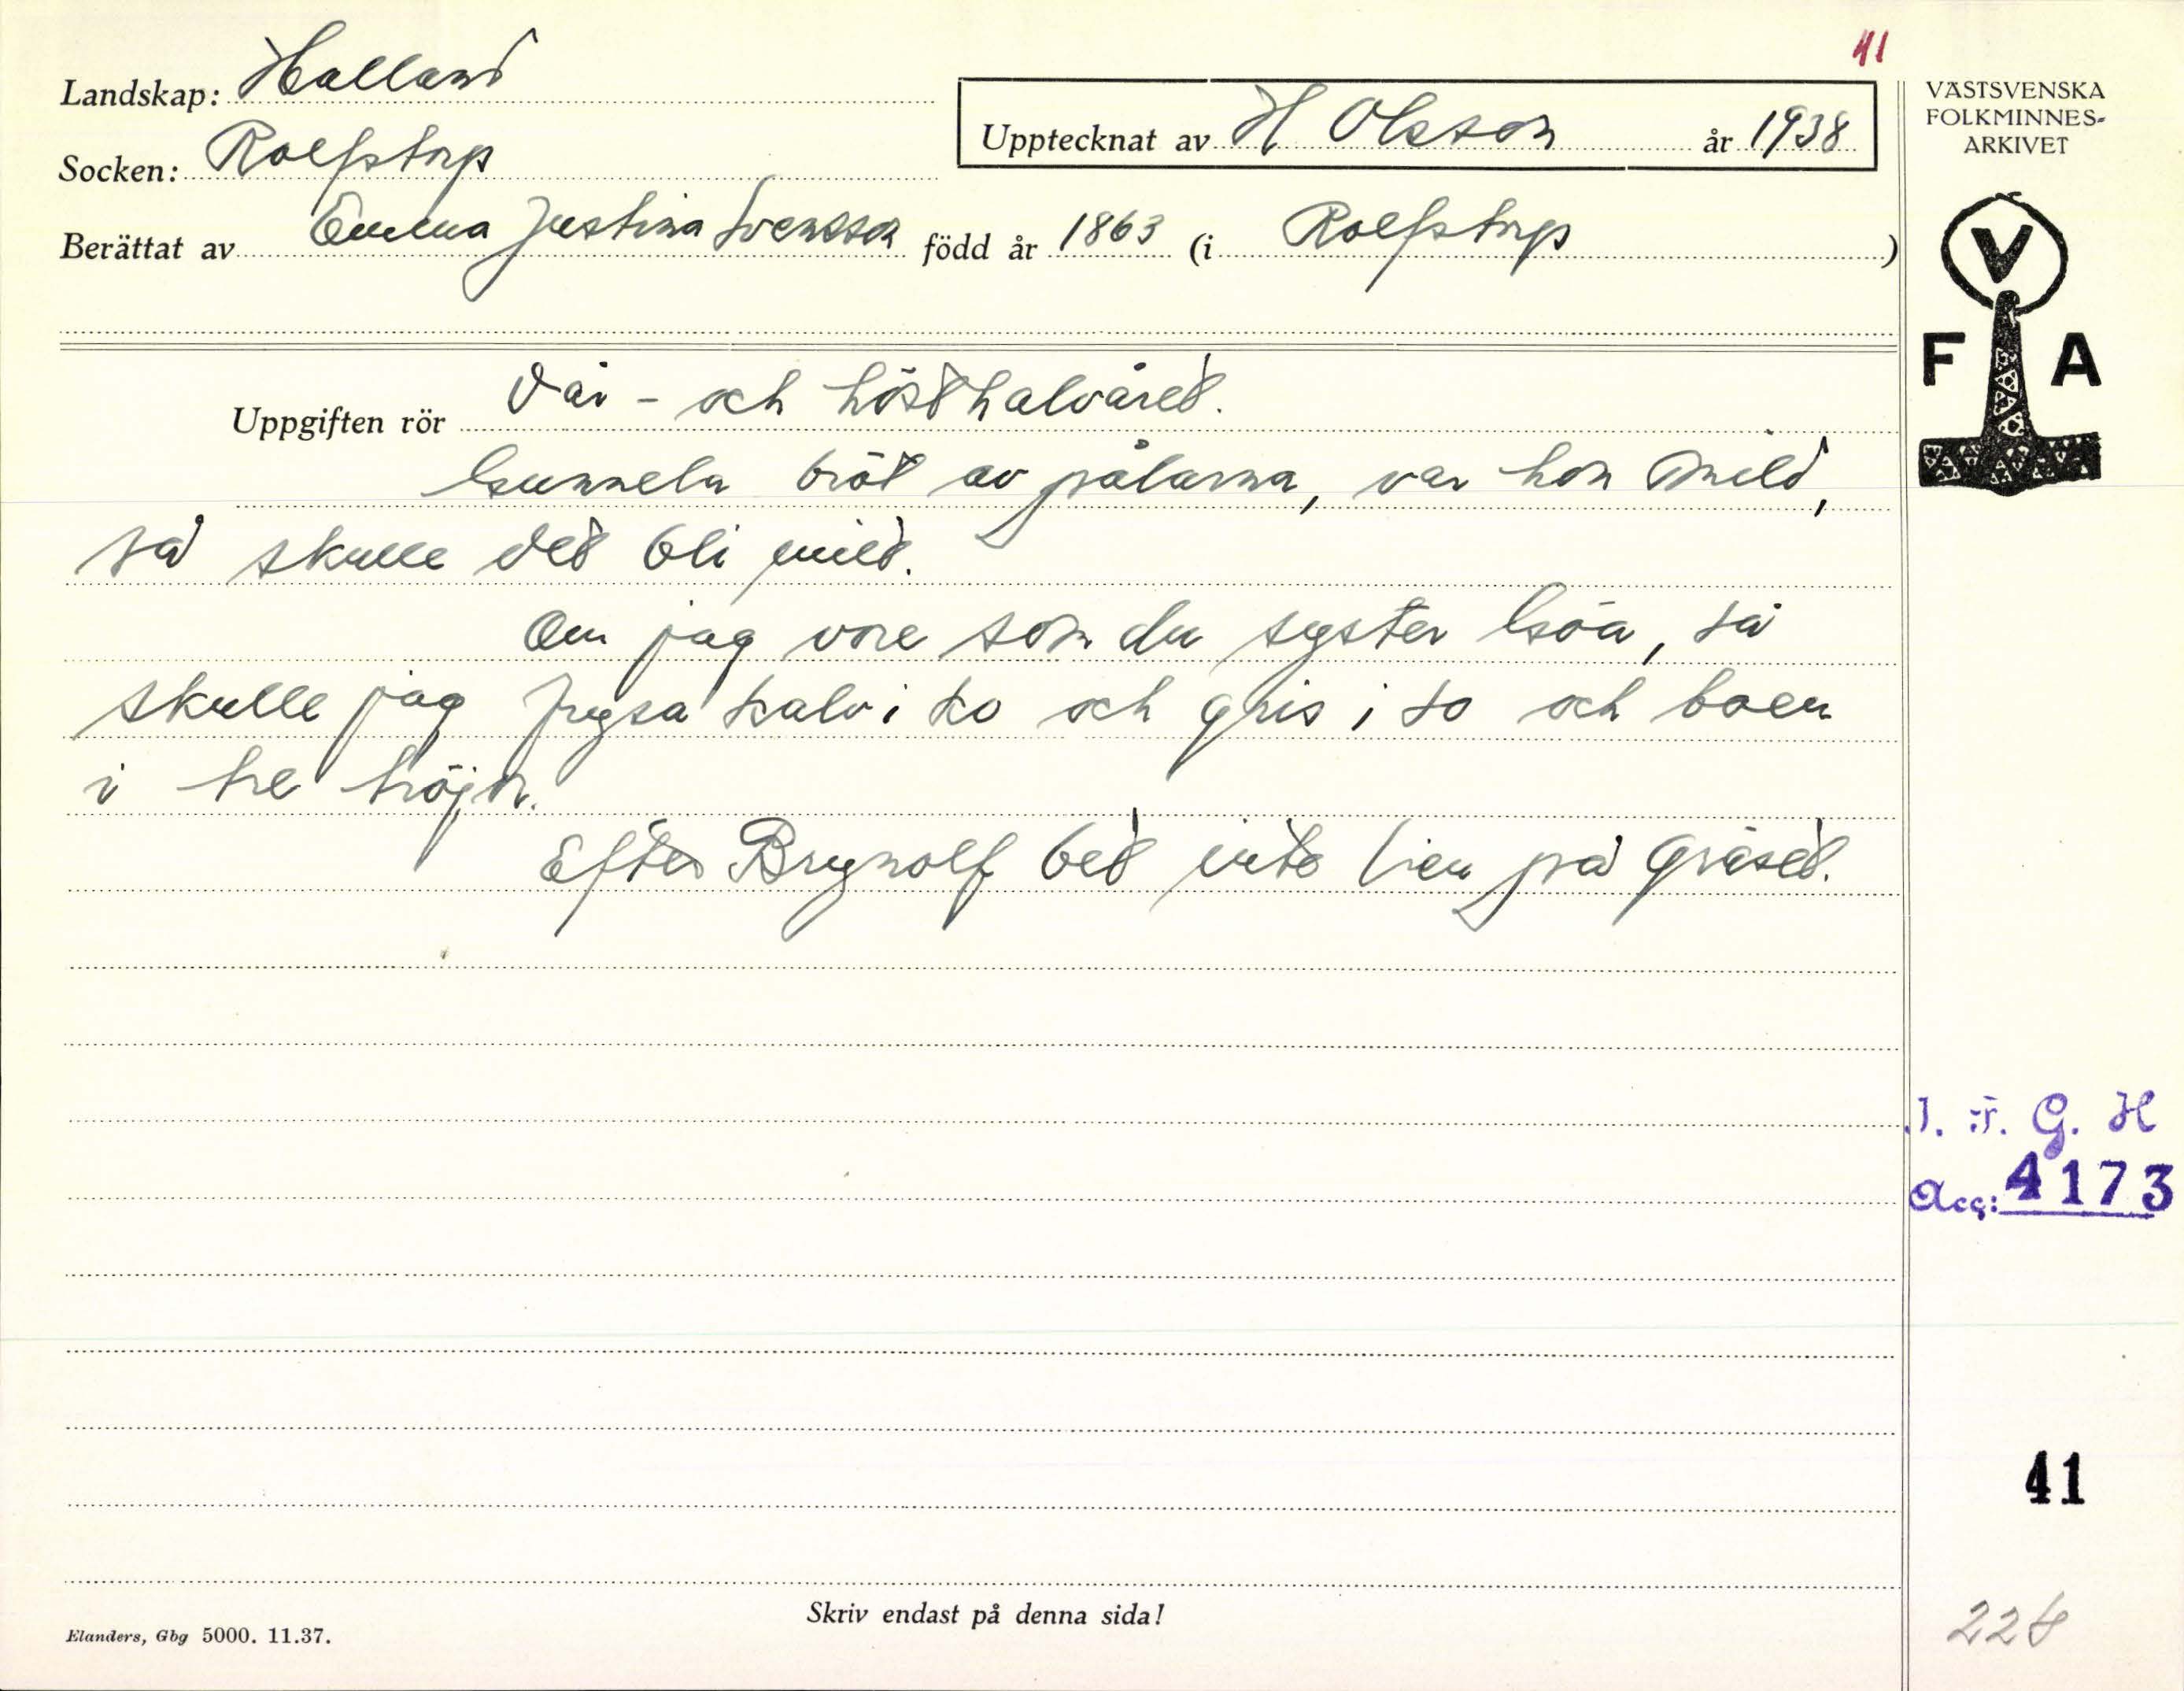 41
Landskap: Halland
Socken: Rolfstorp
Upptecknat av H Olsson år 1938
Berättat av Emma Justina Svensson född år 1863 (i Rolfstorp)
VÄSTSVENSKA
FOLKMINNES-
ARKIVET
V
F A
Uppgiften rör Vår- och hösthalvåret.
Gunnela bröt av pålarna, var hon mild,
så skulle det bli mild.
Om jag vore som du syster Göa, så
skulle jag frysa kalv i ko och gris i so och barn
i tre tröjor.
Efter Brynolf bet inte lien på gräset.
I. F. G. H
Acc: 4173
41
Skriv endast på denna sida!
Elanders, Gbg 5000. 11.37.